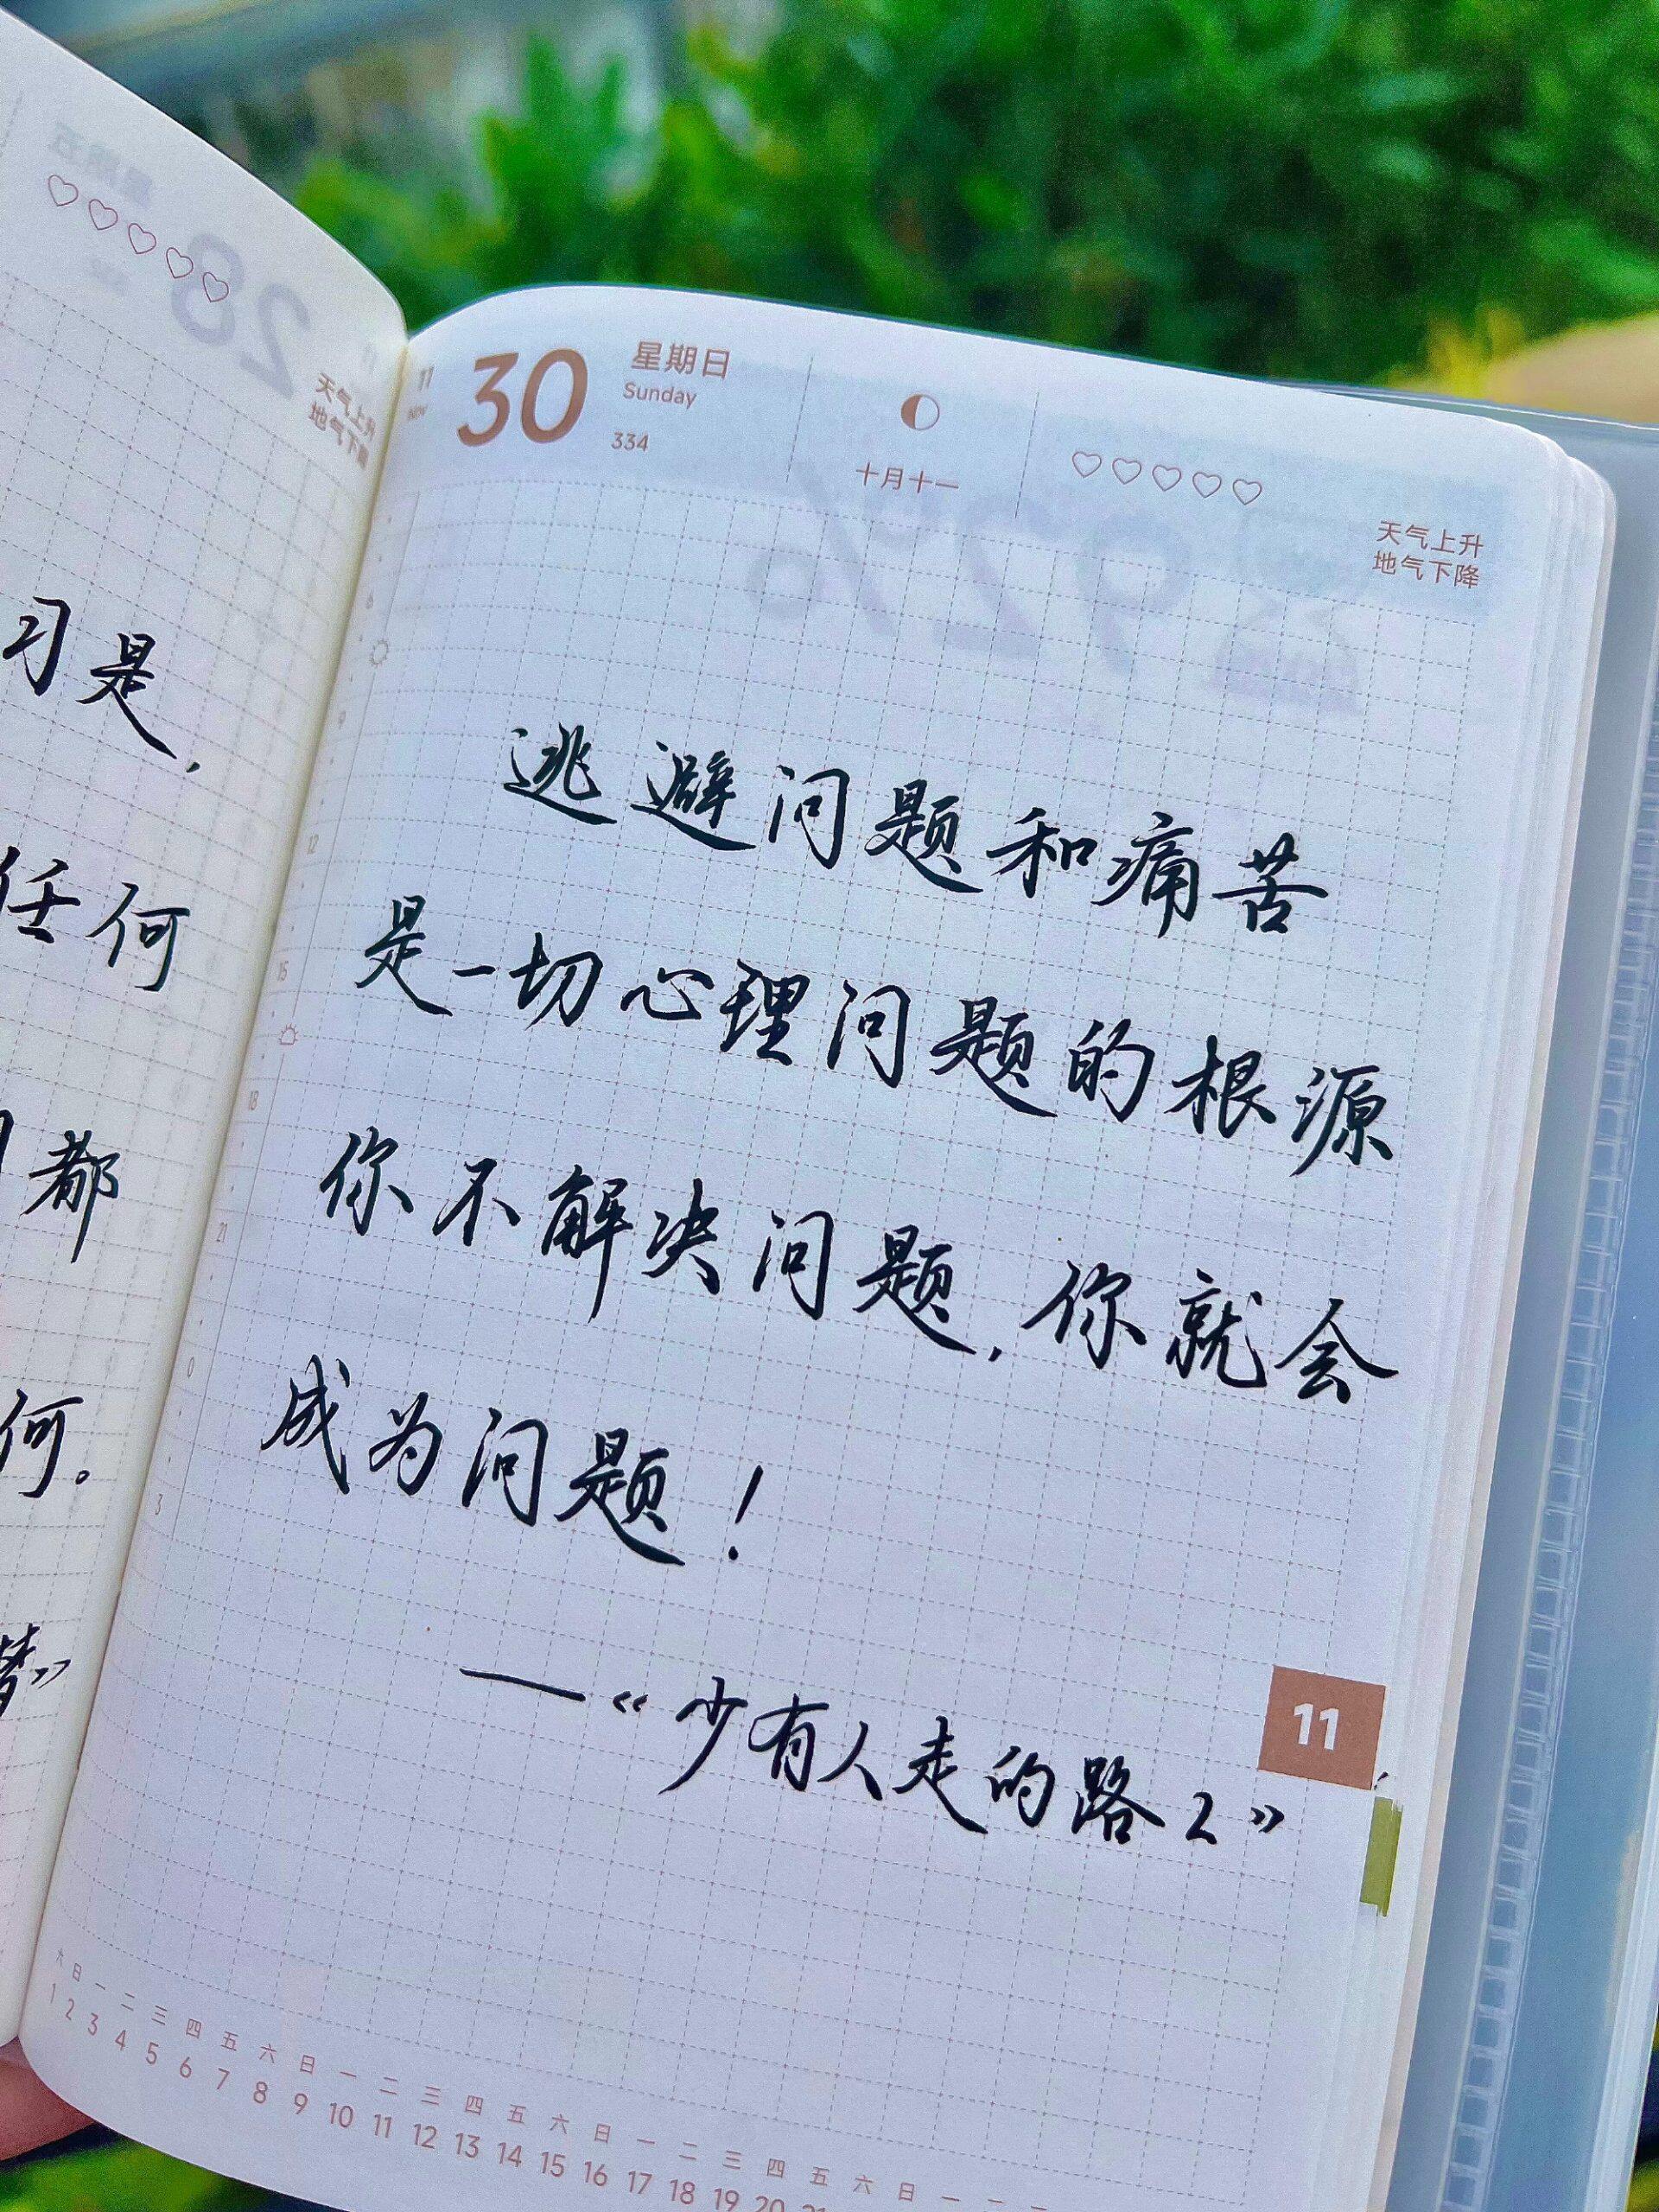 习是，
任何
都
何。
梦》
28
天气上升
地气下降
11
NOV
30
星期日
Sunday
334
十月十一
天气上升
地气下降
6
9
12
15
18
21
0
3
逃避问题和痛苦
是一切心理问题的根源
你不解决问题，你就会
成为问题！
—《少有人走的路2》
11
六 日 一 二 三 四 五 六 日 一 二 三 四 五 六 日 一 二 三 四 五 六 日 一 二 三
1 2 3 4 5 6 7 8 9 10 11 12 13 14 15 16 17 18 19 20 21